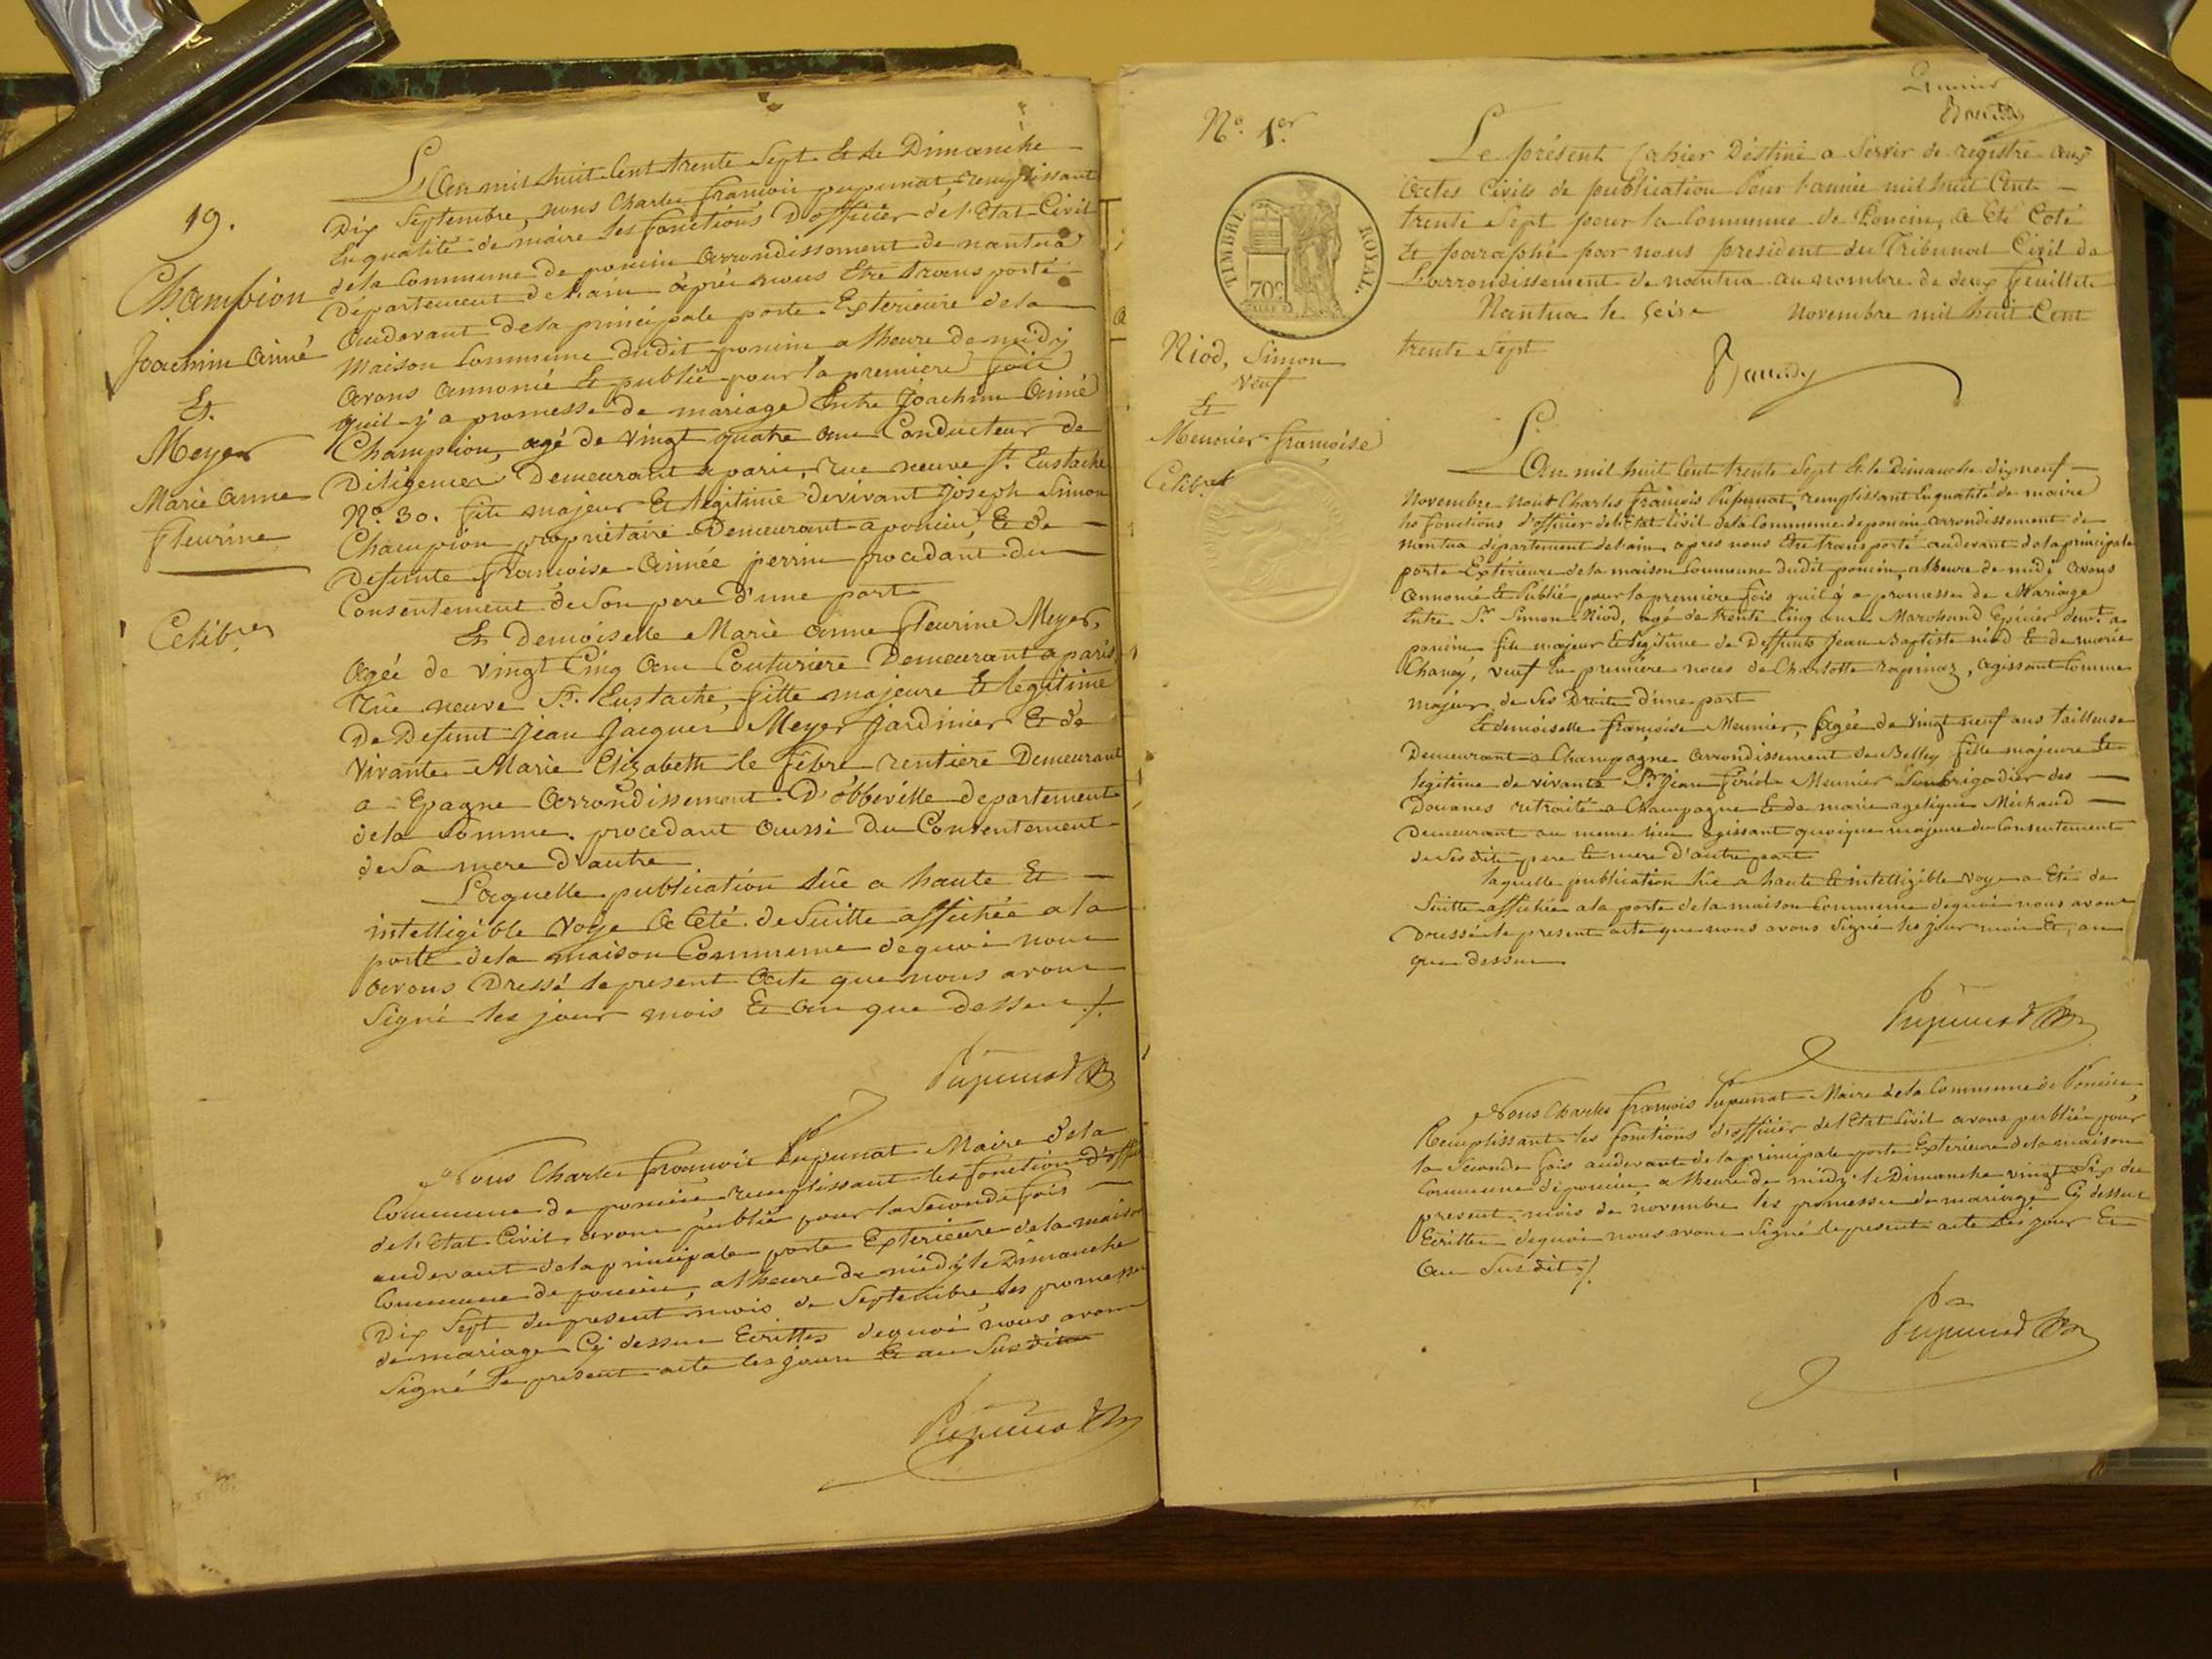 19.
Champion
Joachim Aimé
Et
Meyer
Marie Anne
Fleurine
Celib.res
L'An mil huit Cent trente Sept Et le Dimanche
Dix Septembre, nous Charles françois pupunat, remplissant
En qualité de maire les fonctions D'officier de l'Etat Civil
de la Commune de poncin Arrondissement de nantua
Département de l'ain après nous Etre transporté
Au devant de la principale porte Exterieure de la
Maison Commune dudit poncin a l'heure de midy
Avons Annoncé Et publié pour la premiere fois
qu'il y a promesse de mariage Entre Joachim Aimé
Champion, agé de vingt quatre ans Conducteur de
Diligences Demeurant a paris, rue neuve St. Eustache
No. 30. fils majeur Et légitime de vivant joseph Simon
Champion propriétaire Demeurant a poncin Et de
Defunte françoise Aimée perrin procedant du
Consentement de Son pere d'une part
Et Demoiselle Marie Anne Fleurine Meyer,
Agée de vingt Cinq Ans Couturiere Demeurant a paris
Rue neuve St. Eustache, fille majeure Et legitime
De Defunt Jean Jacques Meyer Jardinier Et de
Vivante Marie Elizabeth le febre rentiere Demeurant
a Epagne Arrondissement D'obbeville departement
de la Somme. procedant Aussi Du Consentement
de Sa mere d'autre
Laquelle publication lûe a haute Et
intelligible Voye A Eté de Suitte affichée a la
porte de la maison Commune de quoi nous
Avons Dressé le present Acte que nous avons
Signé les jour mois Et An que dessus ./.
Pupunat
Nous Charles françois Pupunat Maire de la
Commune de poncin remplissant les fonctions d'offi
de l'Etat Civil avons publié pour la Seconde fois
au devant de la principale porte Exterieure de la maison
Commune de poncin, a l'heure de midy le Dimanche
Dix Sept du present mois de Septembre les promesses
de mariage Cy dessus Ecrittes de quoi nous avons
Signé le present acte les jour Et an Susdits
Pupunat
No. 1er.
TIMBRE ROYAL.
70c
Niod, Simon
Veuf
Et
Meunier françoise
Celib.re
Premier
Le présent Cahier Destiné a Servir de registre aux
Actes Civils de publication Pour l'année mil huit Cent
trente Sept pour la Commune de Poncin, a Eté Coté
Et paraphé par nous president du Tribunal Civil de
L'arrondissement de nantua au nombre de deux feuillets
Nantua le seize novembre mil huit Cent
trente Sept
L'An mil huit Cent trente Sept Et le Dimanche dix neuf
Novembre Nous Charles françois Pupunat, remplissant En qualité de maire
les fonctions d'officier de l'Etat Civil de la Commune de poncin arrondissement de
nantua département de l'ain apres nous Etre transporté au devant de la principale
porte Extérieure de la maison Commune dudit poncin, a l'heure de midi avons
Annoncé Et Publié pour la premiere fois qu'il y a promesse de Mariage
Entre Sr. Simon Niod, agé de trente Cinq ans Marchand Epicier demt. a
poncin fils majeur Et légitime de Deffunts Jean Baptiste niod Et de marie
Chaney, veuf En première noces de Charlotte rapinaz, agissant Comme
majeur de Ses Droits d'une part
Et demoiselle françoise Meunier, Agée de vingt neuf ans tailleuse
Demeurant a Champagne Arrondissement de Belley fille majeure Et
legitime de vivants Sr. Jean feriol Meunier Soubrigadier des
Douanes retraité a Champagne Et de marie agelique Michaud
Demeurant au meme lieu agissant quoique majeure du Consentement
de Ses dits pere Et mere d'autre part
laquelle publication lûe a haute Et intelligible Voye a Eté de
Suitte affichée a la porte de la maison Commune de quoi nous avons
Dressé le present acte que nous avons Signé les jour mois Et, an
que dessus
Pupunat
Nous Charles françois Pupunat Maire de la Commune de Poncin
Remplissant les fonctions d'officier de l'Etat Civil avons publié pour
la Seconde fois au devant de la principale porte Exterieure de la maison
Commune de poncin a l'heure de midy le Dimanche vingt Six du
present mois de novembre les promesses de mariage Cy dessus
Ecrittes de quoi nous avons Signé le present acte les jour Et
An Susdits ./.
Pupunat